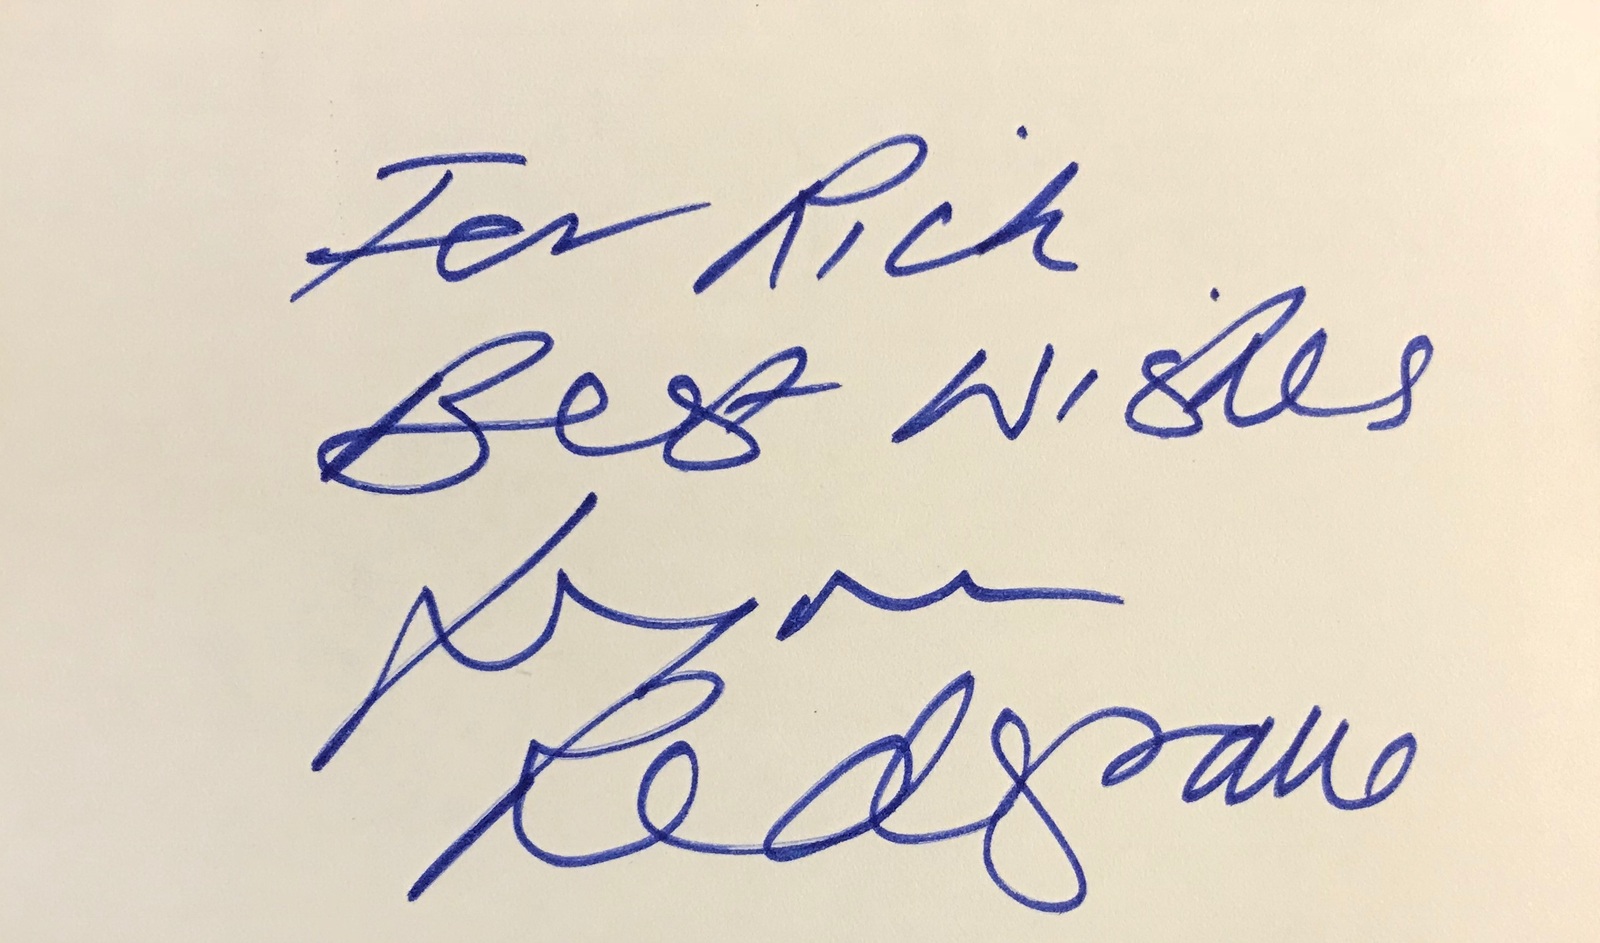 For Rick
Best Wishes
Lynn
Redgrave